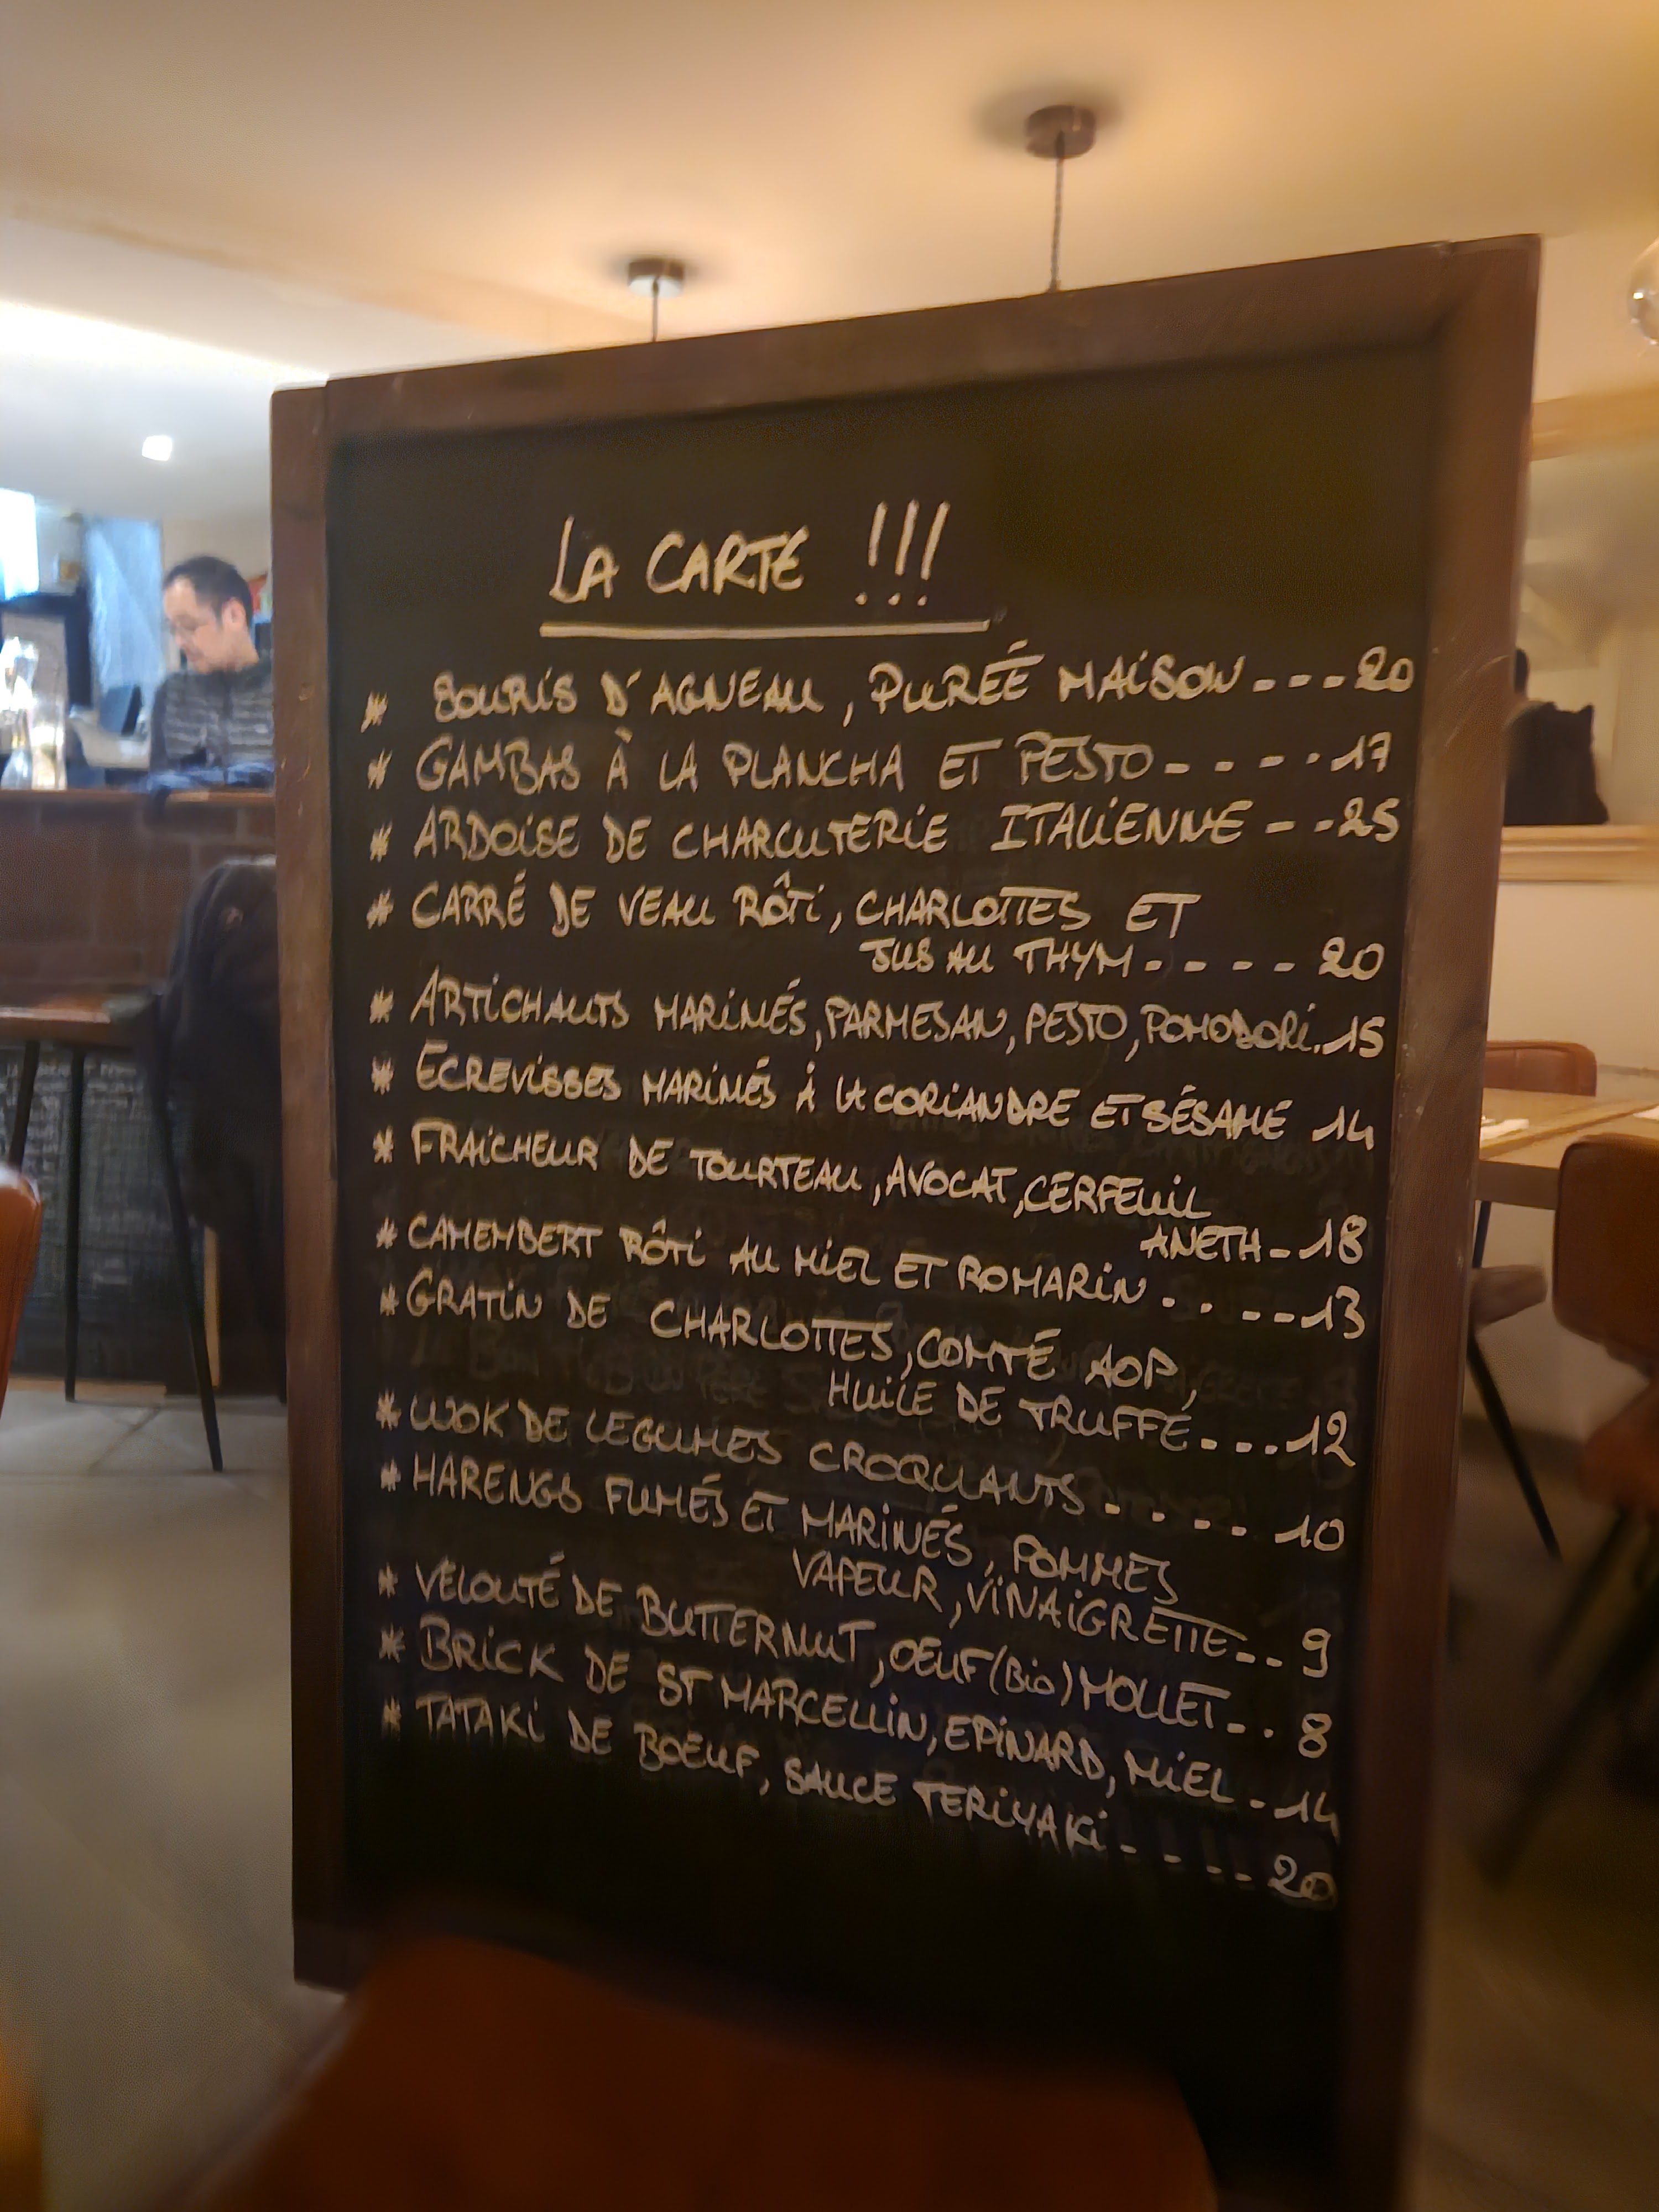 LA CARTE !!!
* SOURIS D'AGNEAU, PURÉE MAISON ---20
* GAMBAS À LA PLANCHA ET PESTO - - - - 17
* ARDOISE DE CHARCUTERIE ITALIENNE - -25
* CARRÉ DE VEAU RÔTI, CHARLOTTES ET
JUS AU THYM - - - - 20
* ARTICHAUTS MARINÉS, PARMESAN, PESTO, POMODORI. 15
* ECREVISSES MARINÉS À LA CORIANDRE ET SÉSAME 14
* FRAICHEUR DE TOURTEAU, AVOCAT, CERFEUIL
ANETH - 18
* CAMEMBERT RÔTI AU MIEL ET ROMARIN . . - - - 13
* GRATIN DE CHARLOTTES, COMTÉ AOP,
HUILE DE TRUFFE - - - - 12
* WOK DE LEGUMES CROQUANTS - - - - 10
* HARENGS FUMÉS ET MARINÉS, POMMES
VAPEUR, VINAIGRETTE - - 9
* VELOUTÉ DE BUTTERNUT, OEUF (Bio) MOLLET - . 8
* BRICK DE ST MARCELLIN, EPINARD, MIEL - 14
* TATAKI DE BOEUF, SAUCE TERIYAKI - - - - - 20